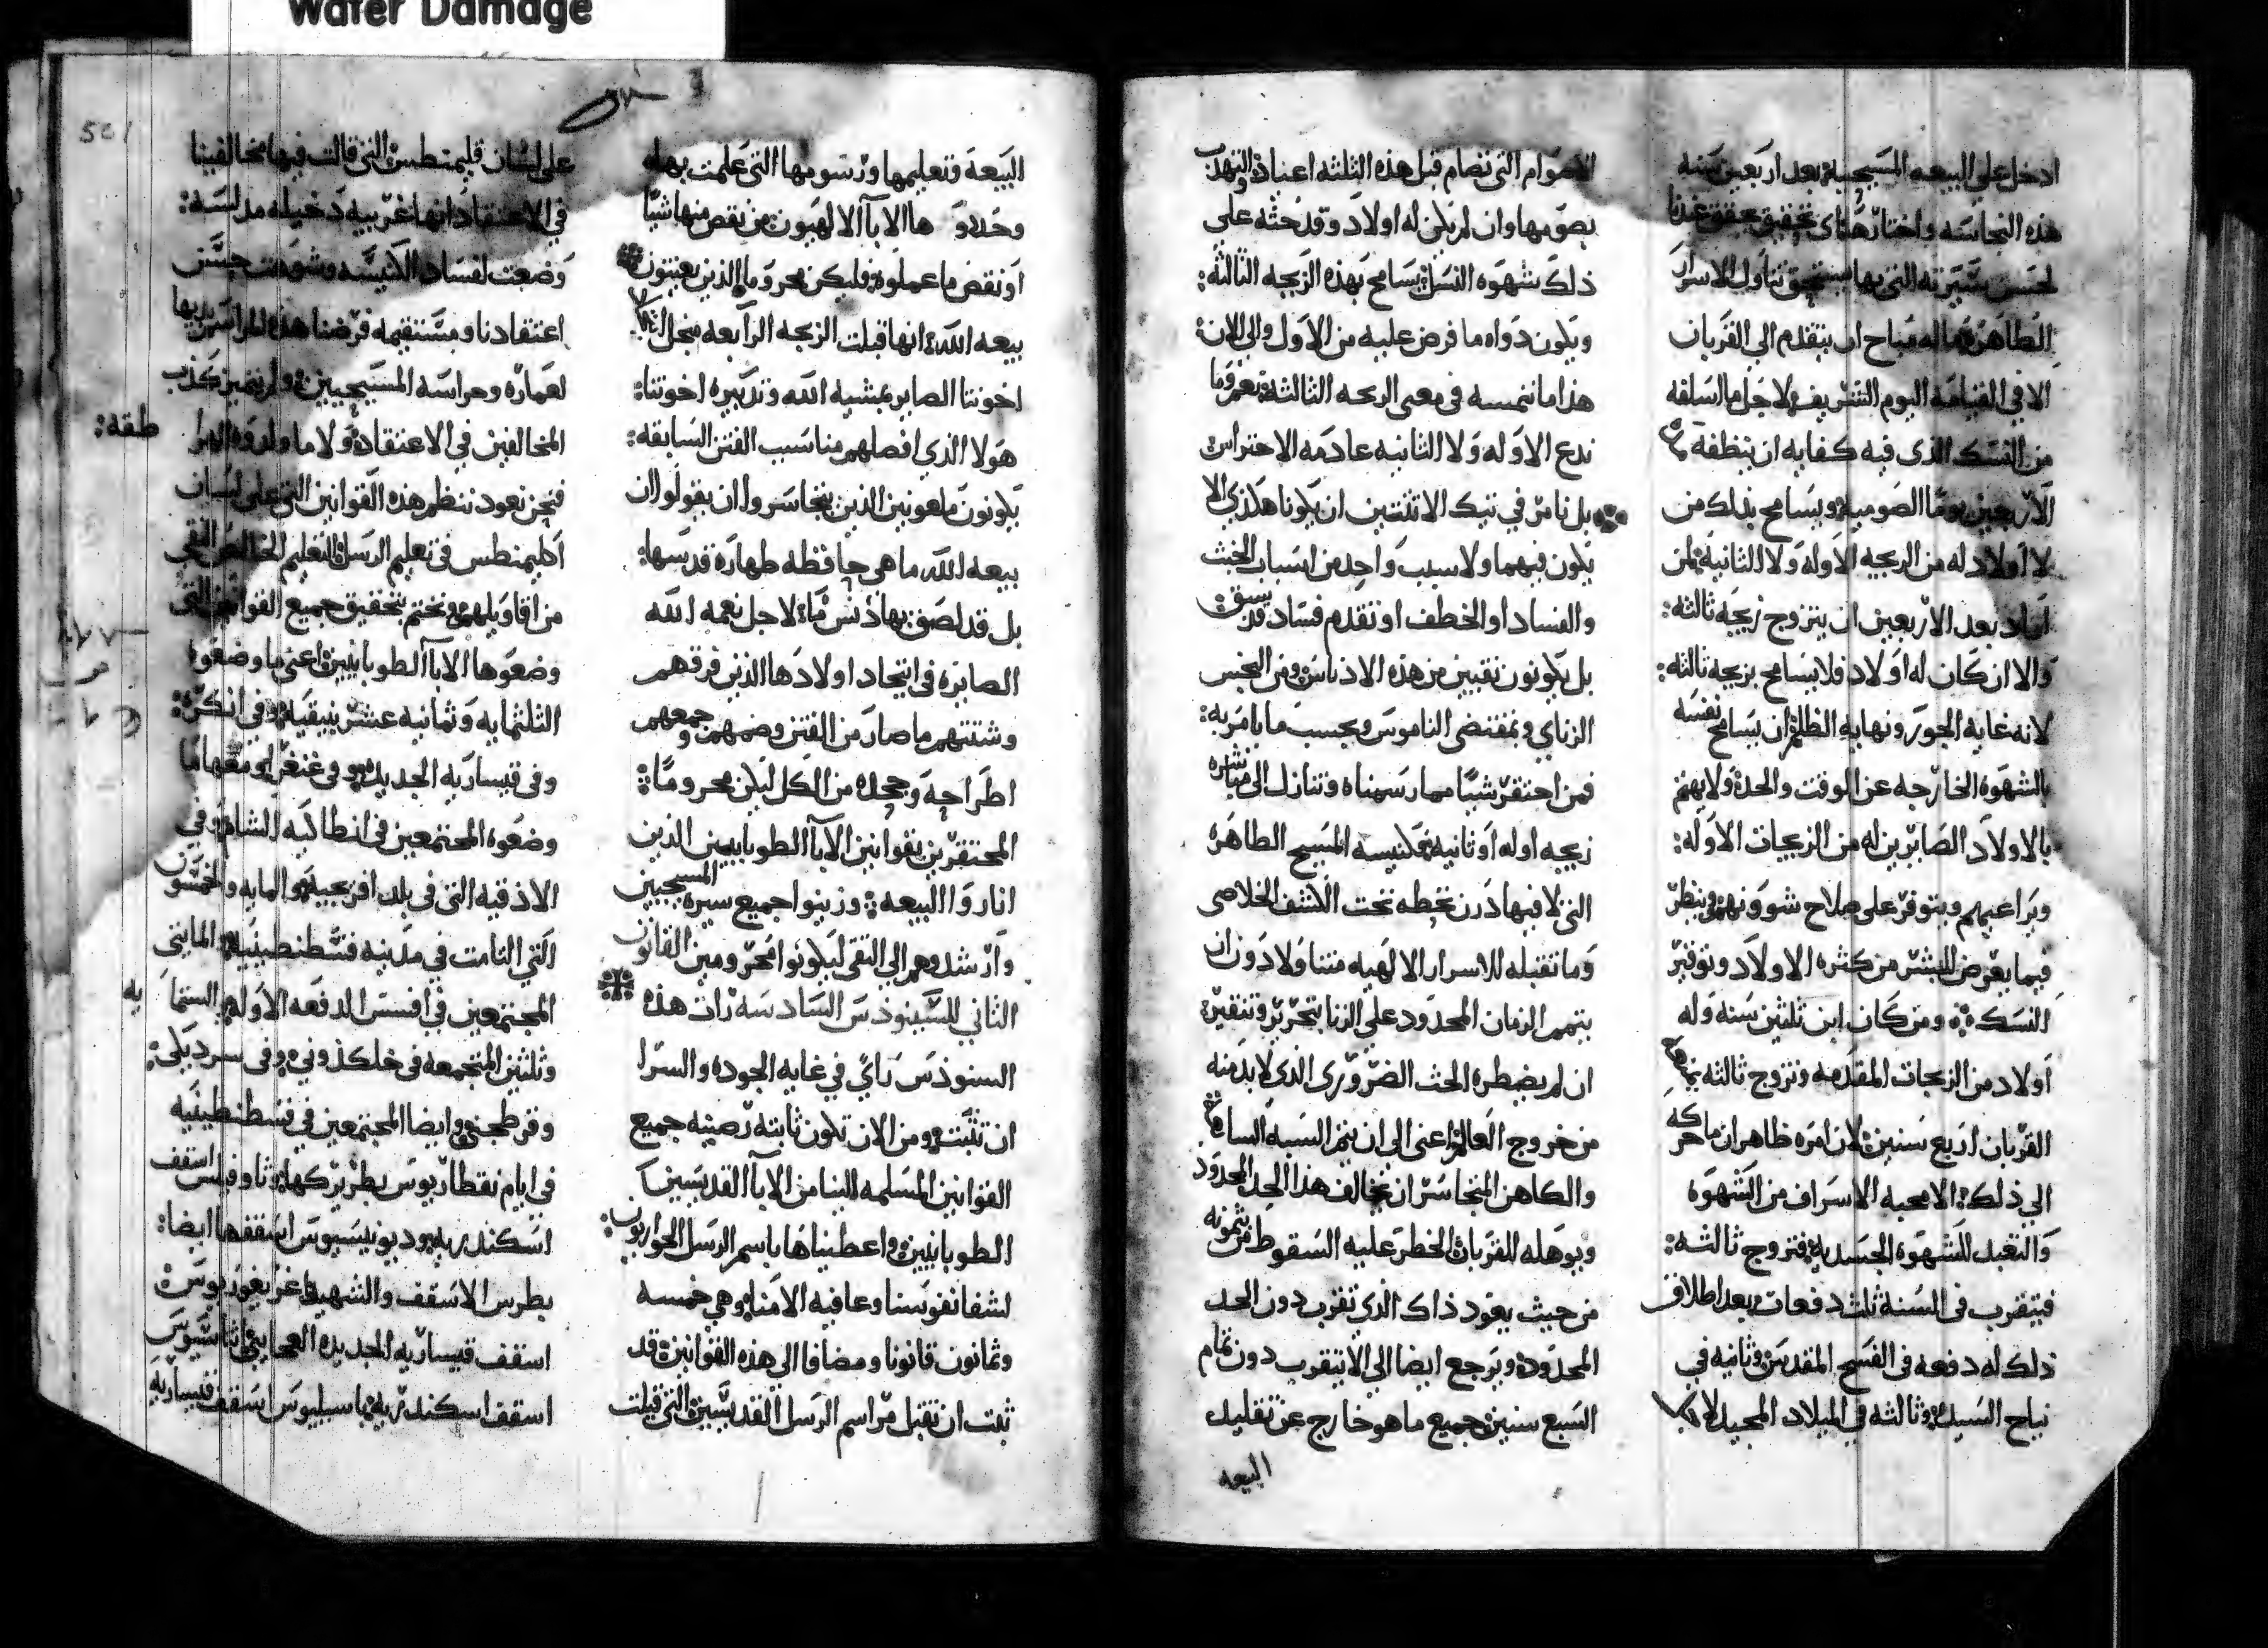 Water Damage
ادخل على البيعه المسيحية بعد اربعين سنه
هذه النجاسه واختارها اى تحقيق يحقق عندنا
لحسن سيرته التي بها يستحق تناول الاسرار
الطاهره ماله مباح ان يتقدم الي القربان
الا في القيامه اليوم الشريف لاجل ما اسلفه
من النسك الذي فيه كفايه ان ينظفه
الاربعين يوما الصوميه ويسامح بذلك من
لا اولاد له من الزيجه الاوله ولا الثانيه لمن
اراد بعد الاربعين ان يتزوج زيجه ثالثه:
والا ان كان له اولاد فلا يسامح بزيجه ثالثه:
لانه غايه الجور ونهايه الظلم ان يسامح نفسه
بالشهوه الخارجه عن الوقت والحد ولا يهتم
بالاولاد الصابرين له من الزيجات الاوله:
ويراعيهم ويتوفر على صلاح شوونهم وينظر
فيما يعرض للبشر من كثره الاولاد وتوفير
النسك ومن كان ابن ثلثين سنه وله
اولاد من الزيجات المقدمه وتزوج ثالثه
القربان اربع سنين لان امره ظاهر ان ما حركه
الي ذلك الا محبه الاسراف من الشهوه
والتعبد للشهوه الجسديه فتزوج ثالثه:
فيتقرب في السنه ثلث دفعات بعد اطلاق
ذلك له دفعه في الفسح المقدس وثانيه في
نياح السيده وثالثه في الميلاد المجيد لا
الاصوام التي تصام قبل هذه الثلثه اعياد والتهدب
بصومها وان لم يكن له اولاد وقد حثه على
ذلك شهوه النسل يسامح بهذه الزيجه الثالثه:
ويكون دواه ما فرض عليه من الاول والي الان:
هذا ما نتمسه في معنى الزيجه الثالثه وما
ندع الاوله ولا الثانيه عادمه الاحتراس
بل نامر في تيك الاثنتين ان يكونا هكذي لا
يكون فيهما ولا سبب واحد من اسباب الخبث
والفساد او الخطف او تقدم فساد قد سبق
بل يكونون نقيين من هذه الادناس ومن النجس
الزناي وبمقتضى الناموس وبحسب ما يامر به:
فمن احتقر شيا مما رسمناه وتنازل الى مباشره
زيجه اوله او ثانيه فكنيسه المسيح الطاهره
التي لا فيها درن تحطه تحت الكشف الخلاصى
وما تقبله للاسرار الالهيه متناولا دون ان
يتمم الزمان المحدود علي الزنا بتحرير وتنقير
ان لم يضطره الحث الضروري الذي لا بد منه
من خروج العالم اعني الى ان يتم السبه
والكاهن المتجاسر ان يخالف هذا الحد المحدود
ويوهله للقربان الخطر عليه السقوط من ثمونه
من حيث يعود ذاك الذي تقرب دون الحد
المحدود ويرجع ايضا الي الا يتقرب دون تمام
السبع سنين جميع ما هو خارج عن تقليد
البيعه
501
البيعه وتعليمها ورسومها التي علمت بها
وحدو ها الابا الالهيون من نقص منها شيا
او نقض ما عملوه فليكن محروما الذين يعيتون
بيعه الله انها قبلت الزيجه الرابعه
اخوتنا الصابر بمشيه الله وتدبيره اخوتنا:
هولا الذي افصلهم منا سبب الفتن السابقه:
يكونون ملعونين الذين يتجاسروا ان يقولوا ان
بيعه الله ما هي حافظه طهاره قدسها:
بل قد لصق بها دنس ما لاجل نعمه الله
الصايره في اتحاد اولادها الذين فرقهم
وشتتهم ما صار من الفتن وضمهم وجمعهم
اطراحه وجحده من الكل ليكن محروما
المحتقرين بقوانين الابا الطوبايبين الذين
اناروا البيعه وزينوا جميع سيره المسيحيين
وارشدوهم الي التقي ليكونوا محرومين القانون
الثاني للسينوذس السادسه رات هذه
السنوذس راي في غايه الجوده والسرا
ان تثبت ومن الان تكون ثابته رصينه جميع
القوانين المسلمه الينا من الابا القديسين
الطوبانيين واعطيناها باسم الرسل الحواريون:
لشفا نفوسنا وعافيه الامنا وهي خمسه
وثمانون قانونا ومضافا الي هذه القوانين قد
ثبت ان تقبل مراسم الرسل القديسين التي قيلت
على لسان قليمنطس التي قالت فيها مخالفينا
في الاعتقاد انها غريبه دخيله مدلسه:
وضعت لفساد الكنيسه وشوهت حسن
اعتقادنا ومستقيمه فرضنا هذه
لعماره وحراسه المسيحيين ولم يتميز كذب
المخالفين في الاعتقاد ولا ما ولدوه
طقه:
فنحن نعود ننظم هذه القوانين التي على لسان
اكليمنطس في تعليم الرسل التعليم الخالص النقي
من اقاويلهم ونختم بتحقيق جميع القوانين التي
وضعوها الابا الطوبانيين اعني ما وضعوه
الثلثمايه وثمانيه عشر بنيقيه وفي انكره:
وفى قيساريه الجديده وفى غنغرا ومعها ما
وضعوه المجتمعين في انطاكيه الشام وفي
الاذقيه التي في بلد افريجيه والمايه والخمسون
التي التامت في مدينه قسطنطينيه المايتي
المجتمعين في افسس الدفعه الاوله الستما يه
وثلثين المتجمعه في خلكذوني وفى سرديكى:
وقرطجني وايضا المجتمعين في قسطنطينيه
في ايام نقطاريوس بطريركها وثاوفيلس اسقف
اسكندريه وديونيسيوس اسقفها ايضا:
بطرس الاسقف والشهيد اغريغوريوس
اسقف قيساريه الجديده العجايبي اثناسيوس
اسقف اسكندريه باسيليوس اسقف قيساريه